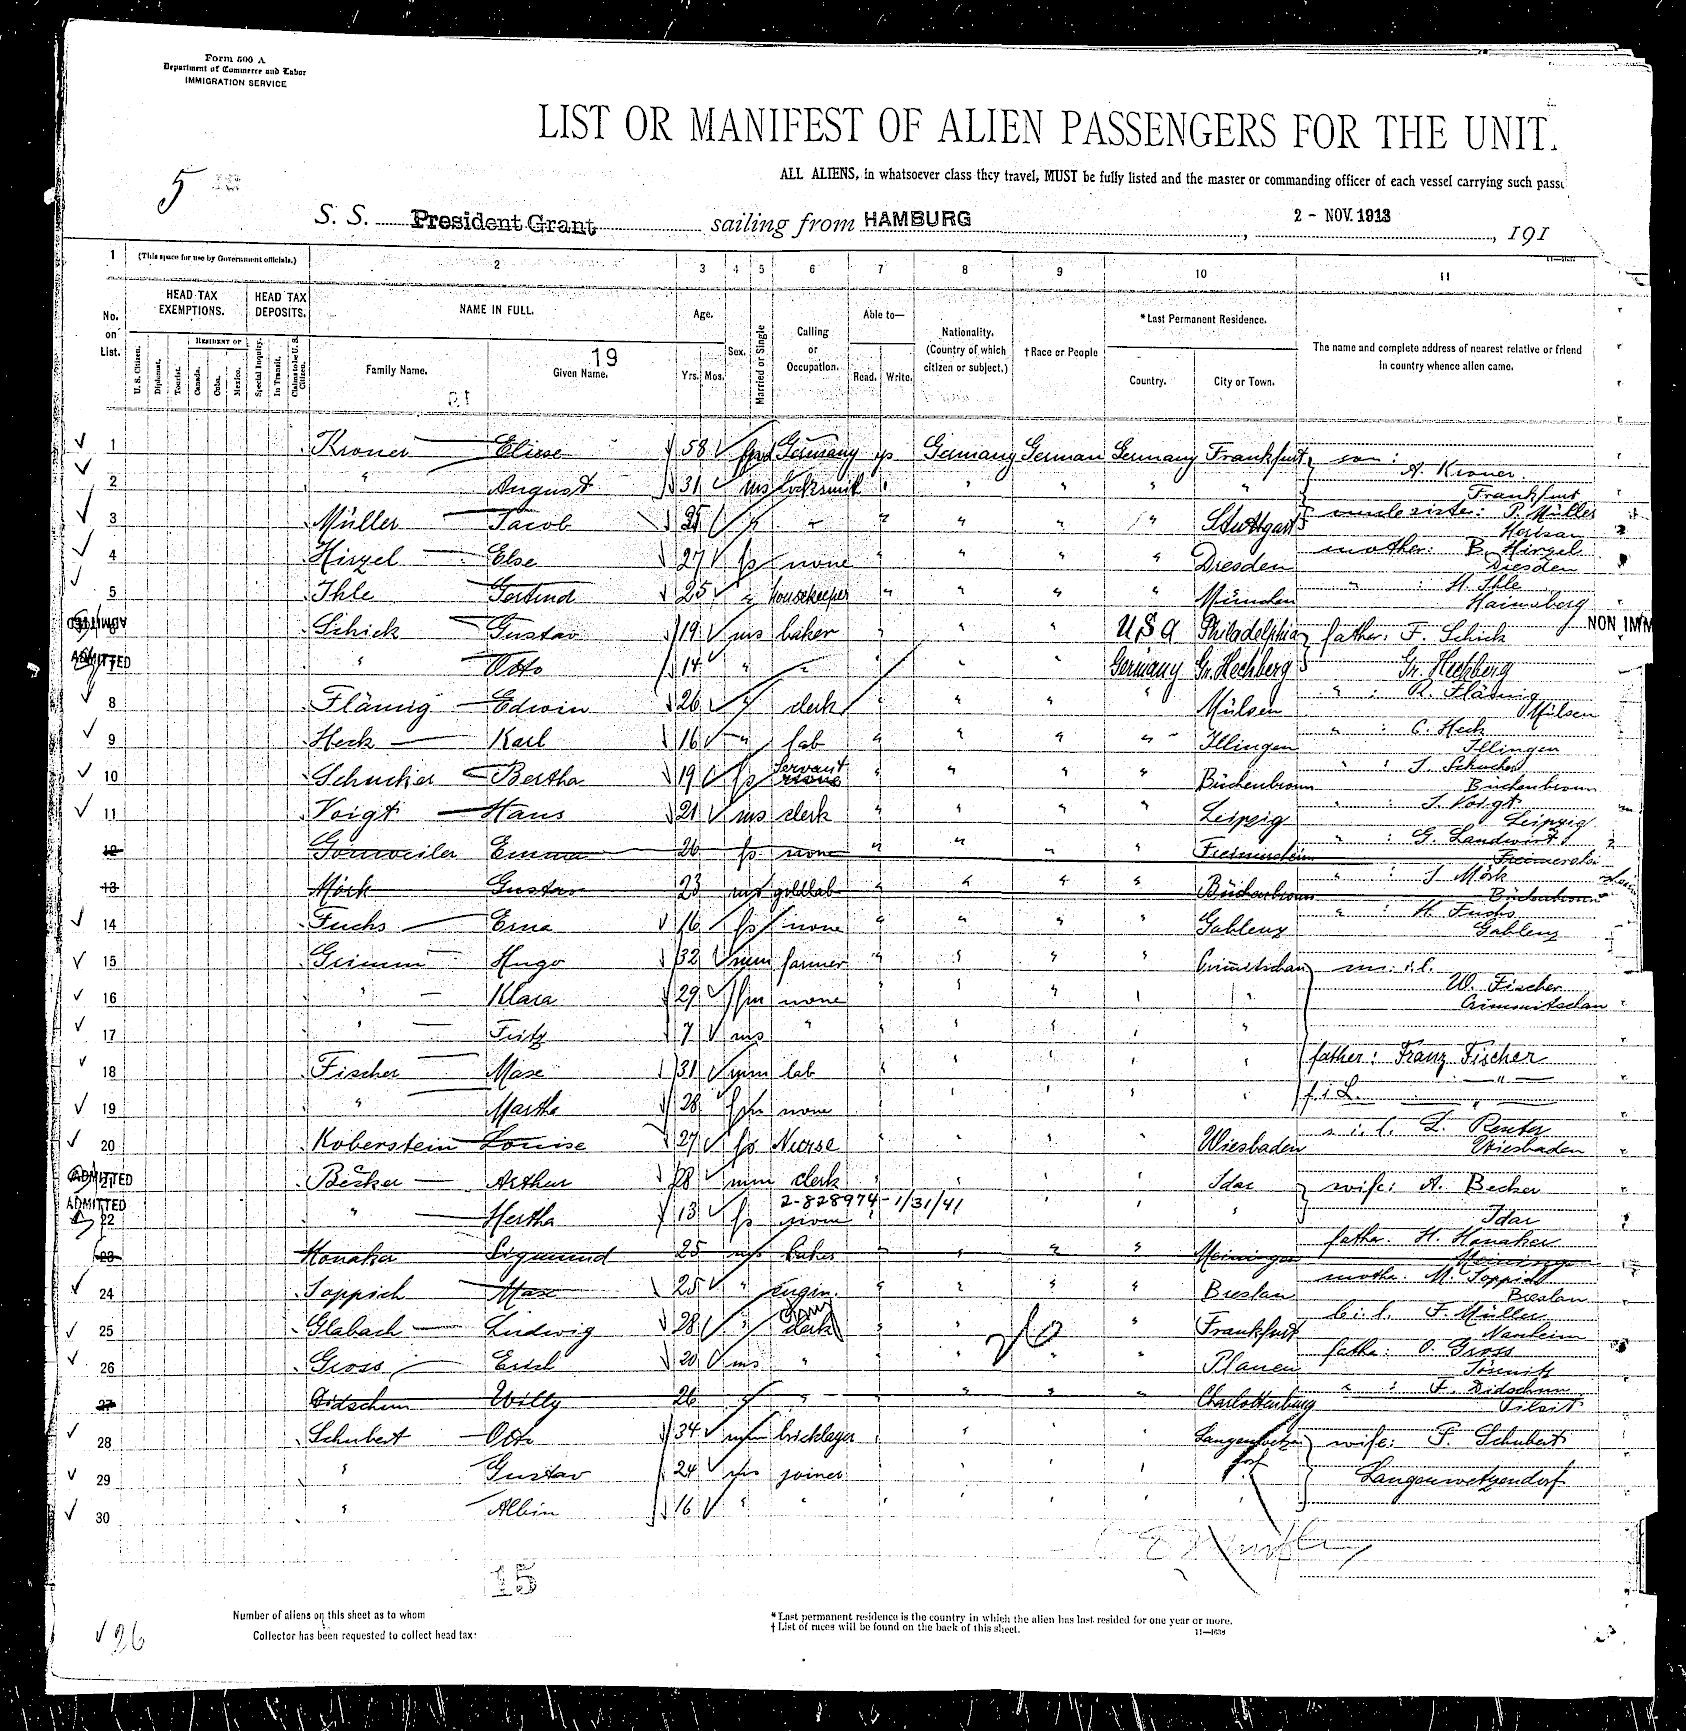 Form 500 A
Department of Commerce and Labor
IMMIGRATION SERVICE
LIST OR MANIFEST OF ALIEN PASSENGERS FOR THE UNIT
ALL ALIENS, in whatsoever class they travel, MUST be fully listed and the master or commanding officer of each vessel carrying such pass
5
S. S. President Grant sailing from HAMBURG, 2 - NOV. 1913, 191
1 (This space for use by Government officials.) 2 3 4 5 6 7 8 9 10 11
No. on List. HEAD TAX EXEMPTIONS. HEAD TAX DEPOSITS. NAME IN FULL. Age. Sex. Married or Single Calling or Occupation. Able to— Nationality. (Country of which citizen or subject.) †Race or People *Last Permanent Residence. The name and complete address of nearest relative or friend in country whence alien came.
U.S. Citizen. Diplomat. Tourist. RESIDENT OF Canada. Cuba. Mexico. Special Inquiry. In Transit. Claims to be U.S. Citizen. Family Name. 19 Given Name. Yrs. Mos. Read. Write. Country. City or Town.
1 Kroner Eliese 58 Germany Germany German Germany Frankfurt son: A. Kroner
2 " August 31 ms " " " " Frankfurt
3 Müller Jacob 25 " " " " Stuttgart P. Müller
4 Hirzel Else 27 fs none " " " Dresden mother: B. Hirzel Dresden
5 Ihle Gertrud 25 " housekeeper " " " " München " : H. Ihle Hainsberg
ADMITTED 6 Schick Gustav 19 ms baker " " " USA Philadelphia father: F. Schick NON IMM
ADMITTED 7 " Otto 14 " " " " Germany Gr. Hechberg Gr. Hechberg
8 Flämig Edwin 26 " clerk " " " " Mülsen " : R. Flämig Mülsen
9 Heck Karl 16 " lab " " " " Illingen " : C. Heck Illingen
10 Schucker Bertha 19 fs servant none " " " " Büchenbronn " : J. Schucker Büchenbronn
11 Voigt Hans 21 ms clerk " " " " Leipzig " : J. Voigt Leipzig
12 Emma 26 fs none " " " " Freimersheim " : G. Landwirt
13 Mörk Gustav 23 ms goldlab " " " " Büchenbronn " : J. Mörk Büchenbronn
14 Fuchs Erna 16 fs none " " " " Gablenz " : H. Fuchs Gablenz
15 Grimm Hugo 32 mm farmer " " " " Crimmitschau m. i. l.
16 " Klara 29 fm none " " " " W. Fischer Crimmitschau
17 " Fritz 7 ms " " " " " "
18 Fischer Max 31 mm lab " " " " " father: Franz Fischer
19 " Martha 28 fm none " " " " f. i. L. — " —
20 Koberstein Louise 27 fs Nurse " " " " Wiesbaden s. i. l. L. Reuter Wiesbaden
ADMITTED 21 Becker Arthur 28 mm clerk " " " Idar wife: A. Becker
2-828974-1/31/41
ADMITTED 22 " Hertha 13 fs none " " " Idar
23 Honaker Sigmund 25 ms baker " " " " Meiningen father: H. Honaker Meiningen
24 Toppich Max 25 " engin. " " " " Breslau mother: M. Toppich Breslau
25 Glabach Ludwig 28 " clerk " " " Frankfurt b. i. l. F. Müller Manheim
26 Gross Erich 20 ms " " " " Plauen father: O. Gross
27 Didschun Willy 26 " " " " " Charlottenburg " : F. Didschun Tilsit
28 Schubert Otto 34 mm bricklager " " " Langenwetzendorf wife: F. Schubert
29 " Gustav 24 ms joiner " " " Langenwetzendorf
30 " Albin 16 " " " " " "
15
Number of aliens on this sheet as to whom
Collector has been requested to collect head tax:
* Last permanent residence is the country in which the alien has last resided for one year or more.
† List of races will be found on the back of this sheet.
26